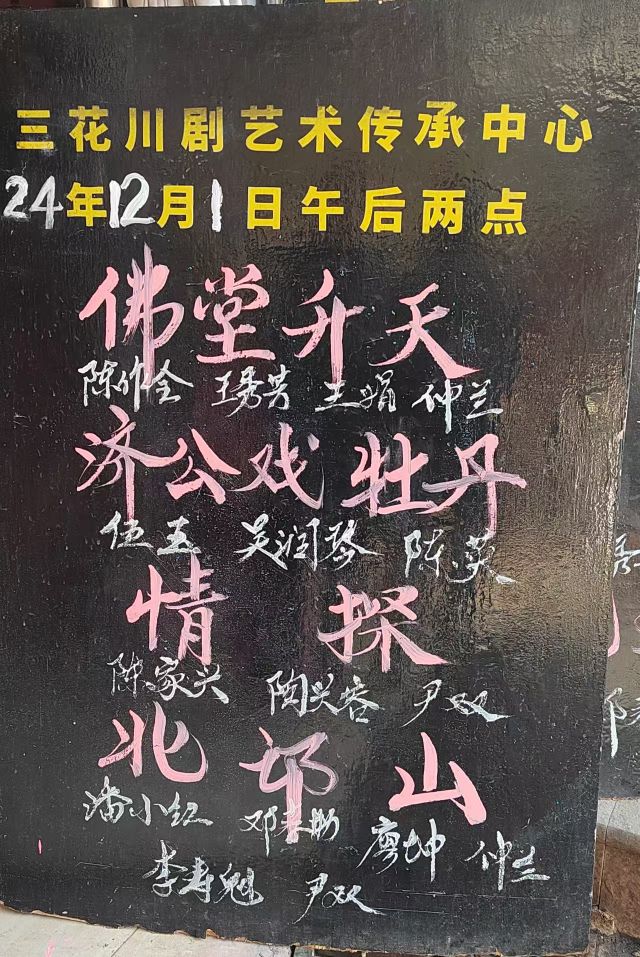 三花川剧艺术传承中心
24年12月1日午后两点
佛堂升天
陈作全 王秀芳 王娟 仲兰
济公戏牡丹
伍 吴润琴 陈英
情探
陈家兴 陶兴容 尹双
北邙山
潘小红 邓 廖坤 仲兰
李寿魁 尹双